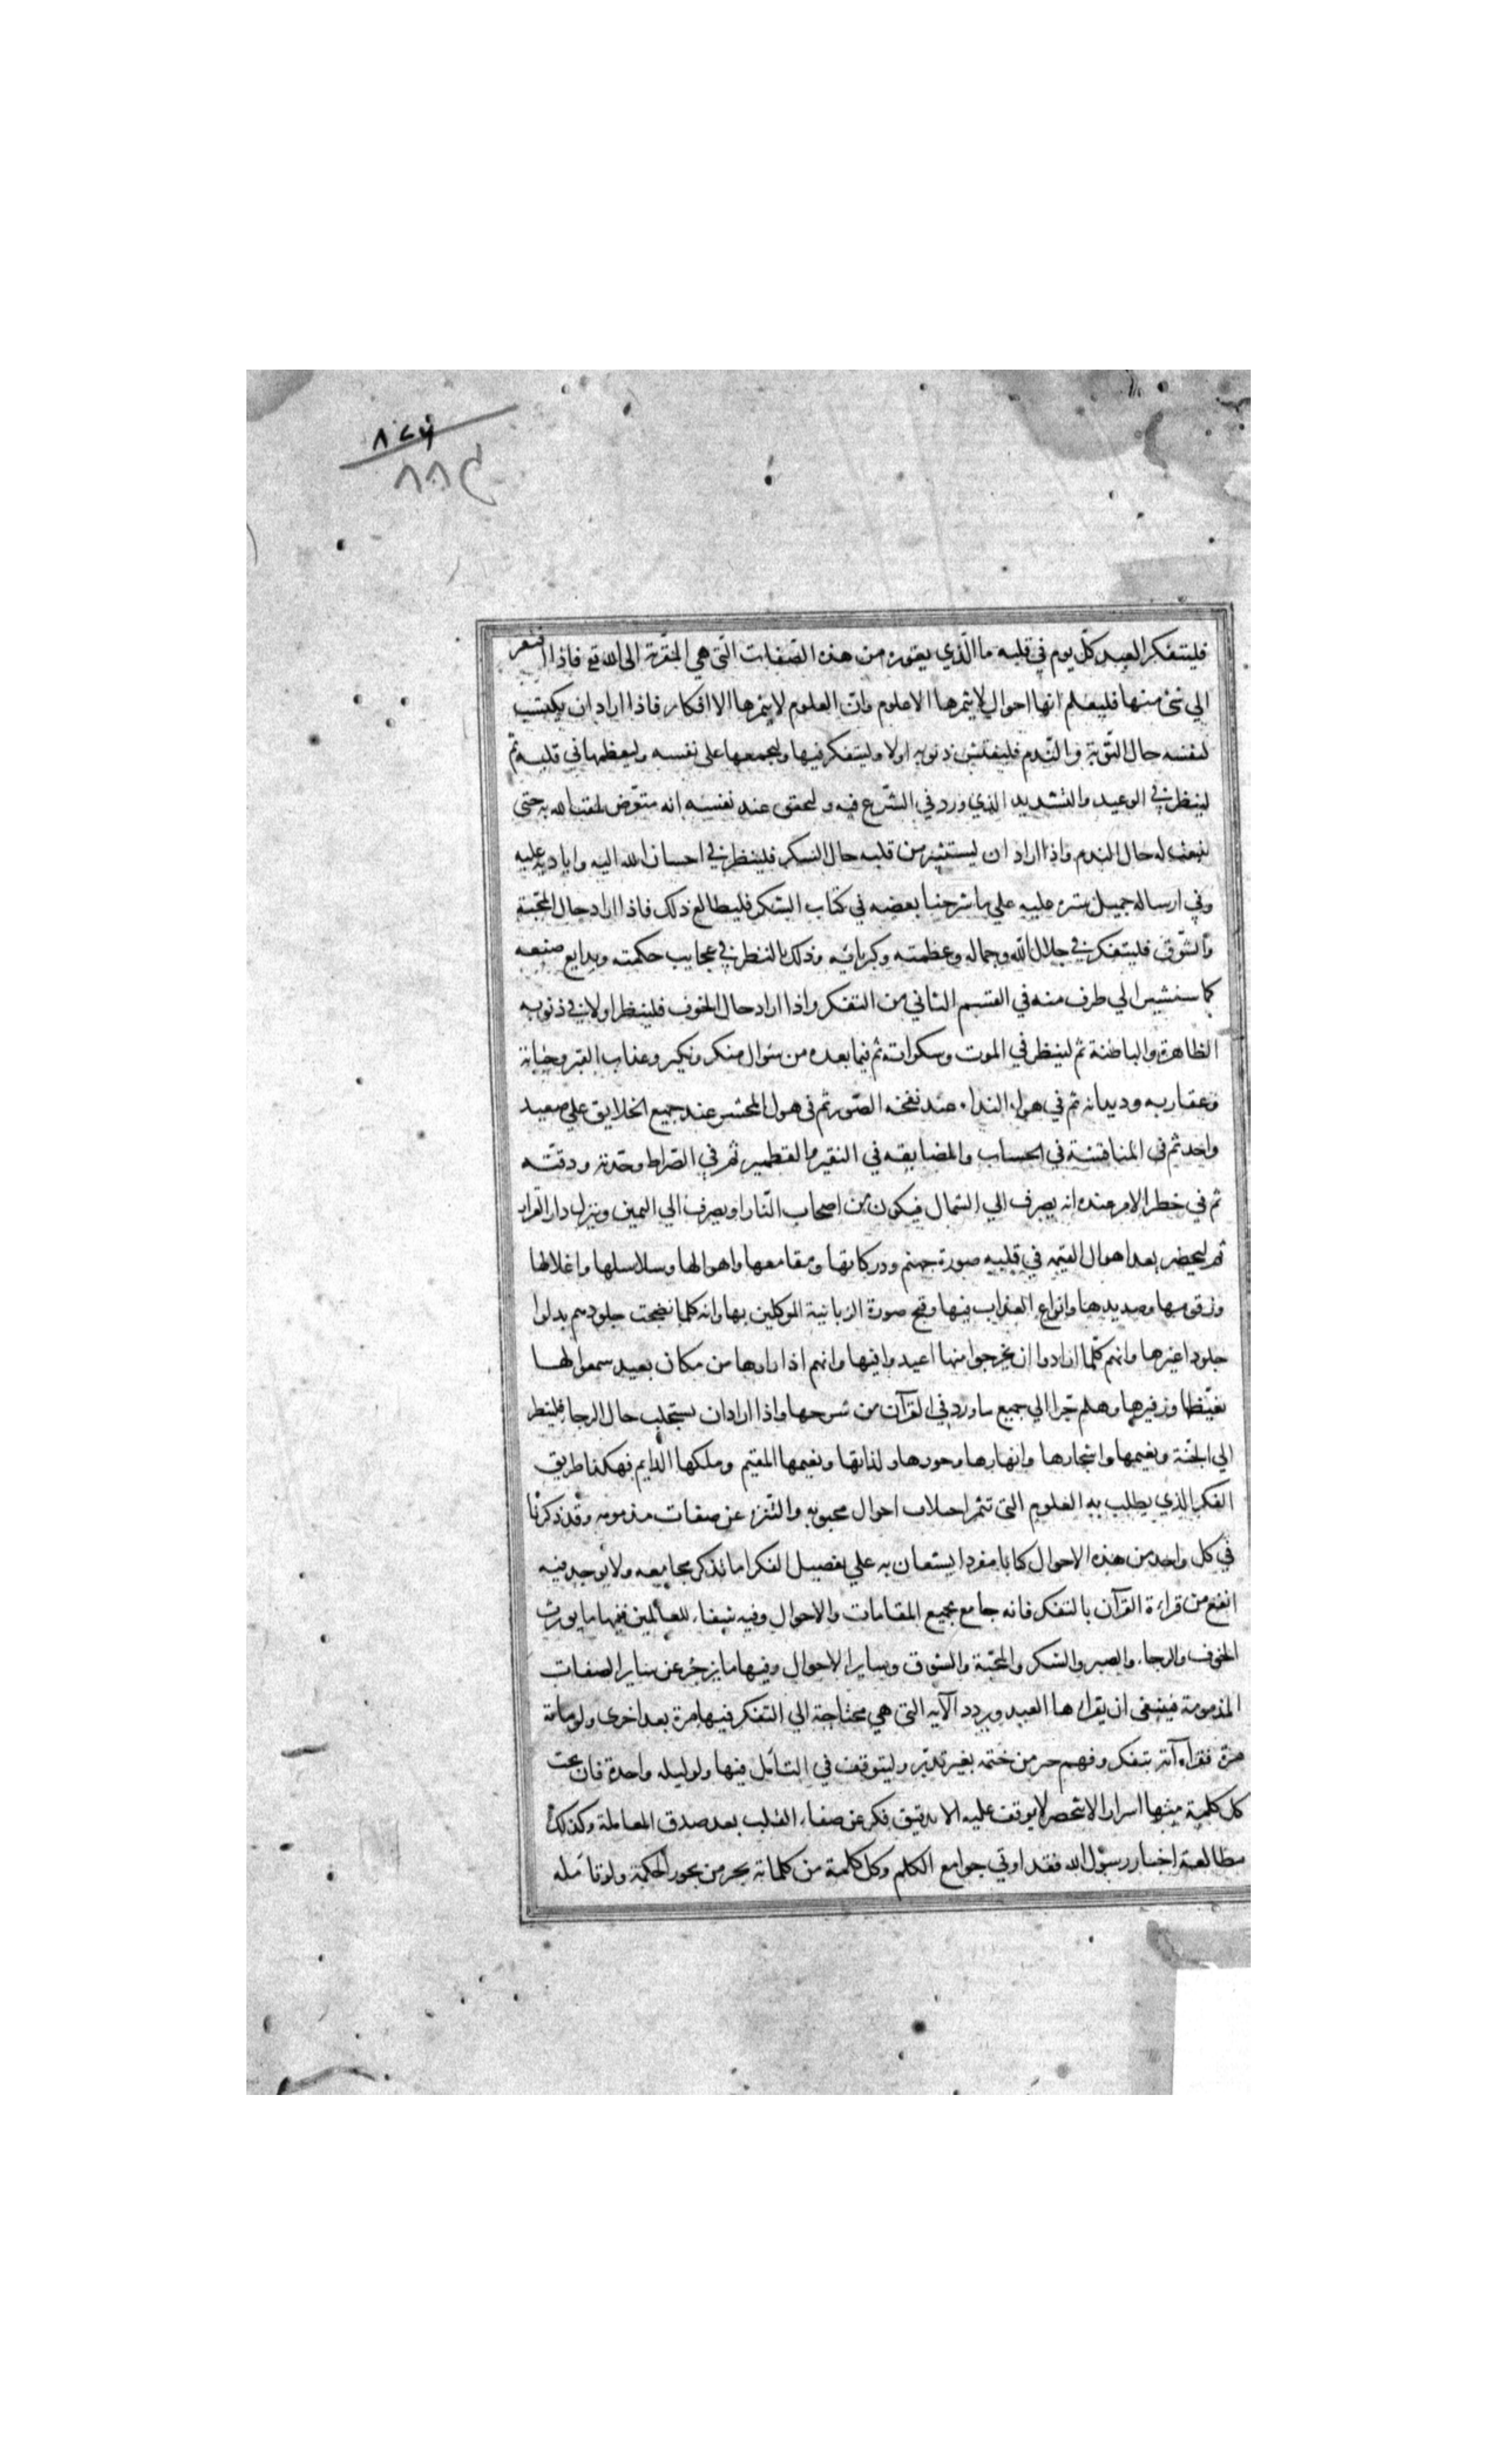 ٨٧٤
٨٨٩
فليتفكر العبد كلّ يوم في قلبه ما الّذي يعوزه من هذه الصّفات الّتي هي المقرّبة الى الله تع فاذا افتقر
الي شئ منها فليعلم انها احوال لا يثمرها الا علوم وانّ العلوم لا يثمرها الا افكار فاذا اراد ان يكتسب
لنفسه حال التّوبة والنّدم فليفتش ذنوبه اولا وليتفكر فيها وليجمعها على نفسه وليعظمها في قلبه ثمّ
لينظر في الوعيد والتشديد الذي ورد في الشّرع فيه وليحقق عند نفسه انه متعّرض لمقت الله به حتى
ينبعث له حال الندم واذا اراد ان يستثير من قلبه حال الشكر فلينظر في احسان الله اليه واياديه عليه
وفي ارساله جميل ستره عليه علي ما شرحنا بعضه في كتاب الشكر فليطالع ذلك فاذا اراد حال المحّبة
والشّوق فليتفكر في جلال الله وجماله وعظمته وكبريائه وذلك بالنظر في عجايب حكمته وبدايع صنعه
كما سنشير الي طرف منه في القسم الثاني من التفكر واذا اراد حال الخوف فلينظر اولا في ذنوبه
الظاهرة والباطنة ثم لينظر في الموت وسكراته ثم فيما بعده من سئوال منكر ونكير وعذاب القبر وحياته
وعقاربه وديدانه ثم في هول النداء عند نفخه الصّور ثم في هول المحشر عند جميع الخلايق علي صعيد
واحد ثم في المناقشة في الحساب والمضايقه في النقير والقطمير ثم في الصّراط وحّدته ودقّته
ثم في خطر الامر عنده انه يصرف الي الشمال فيكون من اصحاب النّار او يصرف الي اليمين وينزل دار القرار
ثم ليحضر بعد اهوال القيمه في قلبه صورة جهنم ودركاتها ومقامعها واهوالها وسلاسلها واغلالها
وزقومها وصديدها وانواع العذاب فيها وقبح صورة الزبانية الموكلين بها وانه كلما نضجت جلودهم بدلوا
جلودا غيرها وانهم كلّما ارادوا ان يخرجوا منها اعيدوا فيها وانهم اذا راوها من مكان بعيد سمعوا لها
تغيّظا وزفيرها وهلم جّرا الي جميع ما ورد في القرآن من شرحها واذا اراد ان يستجلب حال الرجا فلينظر
الي الجنّة ونعيمها واشجارها وانهارها وحورها ولذاتها ونعيمها المقيم وملكها الدايم فهكذا طريق
الفكر الذي يطلب به العلوم التي تثمر اجلاب احوال محبوبه والتّنزه عن صفات مذمومه وقد ذكرنا
في كل واحد من هذه الاحوال كتابا مفردا يستعان به علي تفصيل الفكر اما بذكر مجامعه ولا يوجد فيه
انفع من قراءة القرآن بالتفكر فانه جامع بجميع المقامات والاحوال وفيه شفاء للعالمين ففيها ما يورث
الخوف والرجاء والصبر والشكر والمحّبة والشوق وساير الاحوال وفيها ما يزجر عن ساير الصفات
المذمومة فينبغي ان يقراها العبد ويردد الآيه التي هي محتاجة الي التفكر فيها مرة بعد اخرى ولو ماىة
مرة فقراءه آية بتفكر وفهم خير من ختمه بغير تدبّر وليتوقف في التأمل فيها ولو ليله واحدة فان تحت
كل كلمة منها اسرار لا تنحصر لا يوقف عليه الا بدقيق فكر عن صفاء القلب بعد صدق المعاملة وكذلك
مطالعة اخبار رسول الله فقد اوتي جوامع الكلم وكل كلمة من كلماته بحر من بحور الحكمة ولو تأمله